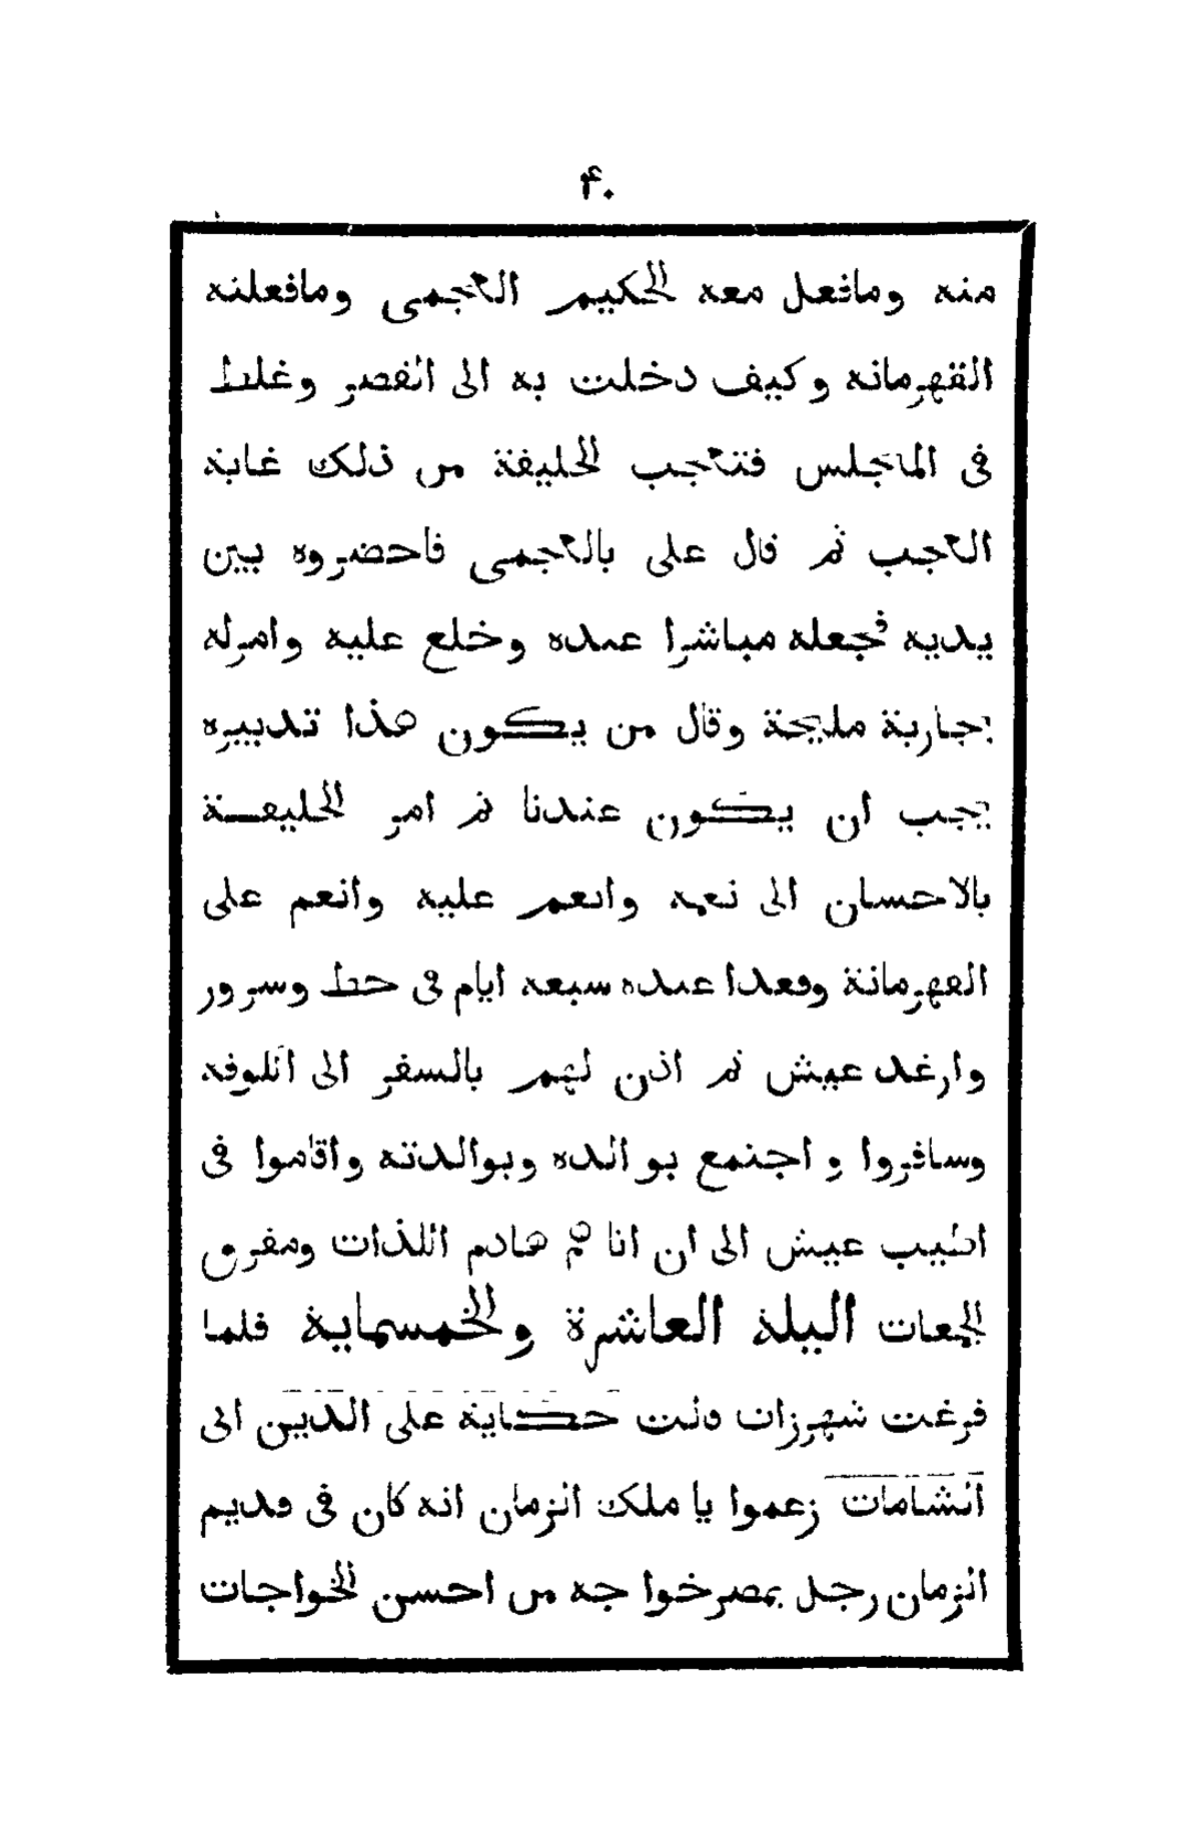 ۴۰
منه ومافعل معه الحكيم العجمى ومافعلته
القهرمانه وكيف دخلت به الى القصر وغلط
فى المجلس فتعجب الخليفة من ذلك غاية
العجب ثم قال على بالعجمى فاحضروه بين
يديه فجعله مباشرا عنده وخلع عليه وامر له
بجارية مليحة وقال من يكون هذا تدبيره
يجب ان يكون عندنا ثم امر الخليفة
بالاحسان الى نعمه وانعم عليه وانعم على
القهرمانة وقعدا عنده سبعه ايام فى حظ وسرور
وارغد عيش ثم اذن لهم بالسفر الى الكوفه
وسافروا واجتمع بوالده وبوالدته واقاموا فى
اطيب عيش الى ان اتاهم هادم اللذات ومفرق
الجمعات اليلة العاشرة والخمسماية فلما
فرغت شهرزاد قالت حكاية على الدين ابى
الشامات زعموا يا ملك الزمان انه كان فى قديم
الزمان رجل بمصر خواجه من احسن الخواجات